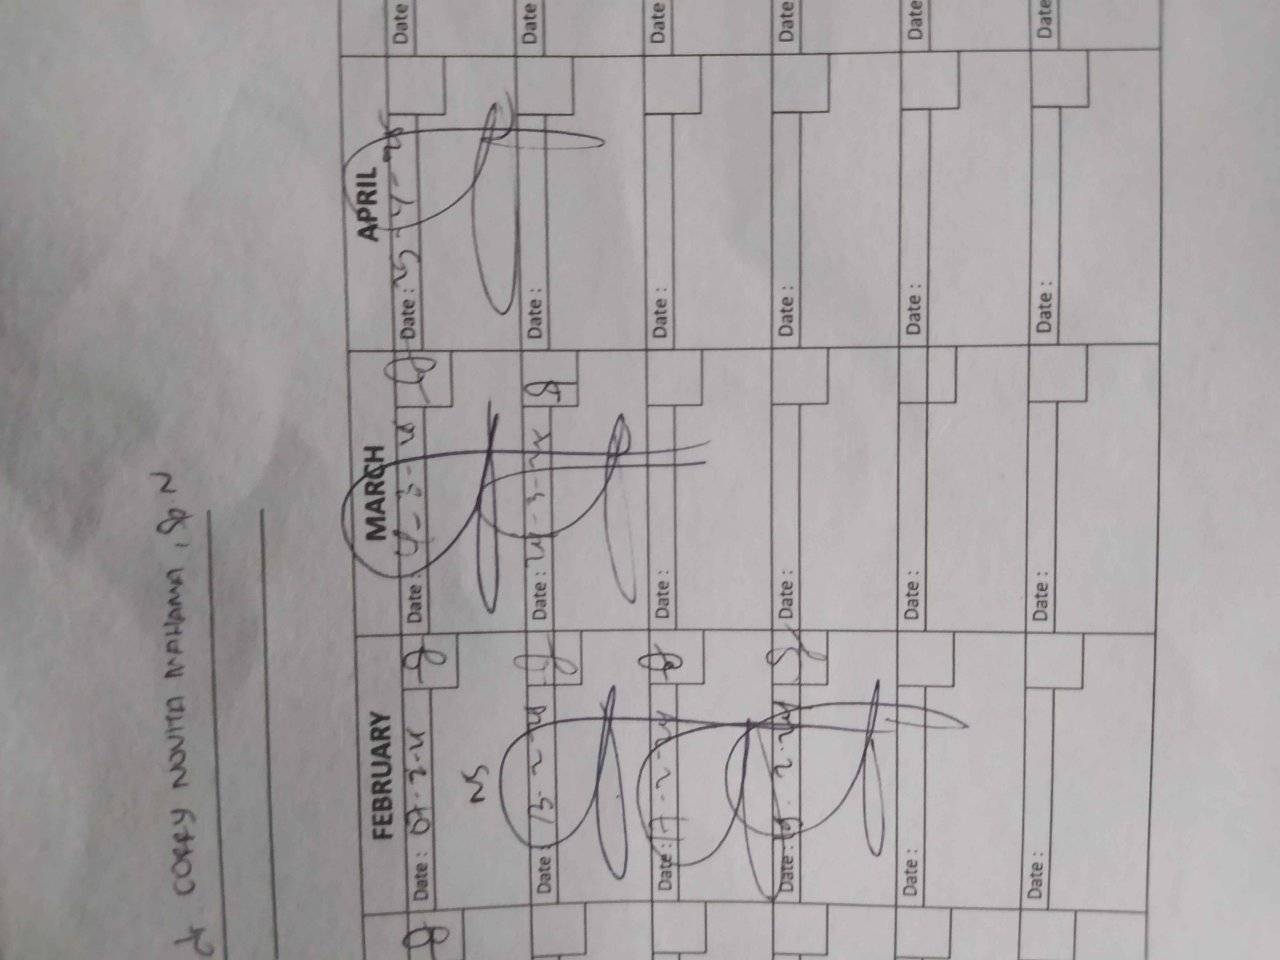 dr. CORRY NOVITA MAHAMA, Sp.N
FEBRUARY MARCH APRIL
Date : 07-2-24 Date : 4-3-24 Date : 25-4-24 Date
NS
Date : 13-2-24 Date : 21-3-24 Date : Date
Date : 17-2-24 Date : Date : Date
Date : 19-2-24 Date : Date : Date
Date : Date : Date : Date
Date : Date : Date : Date